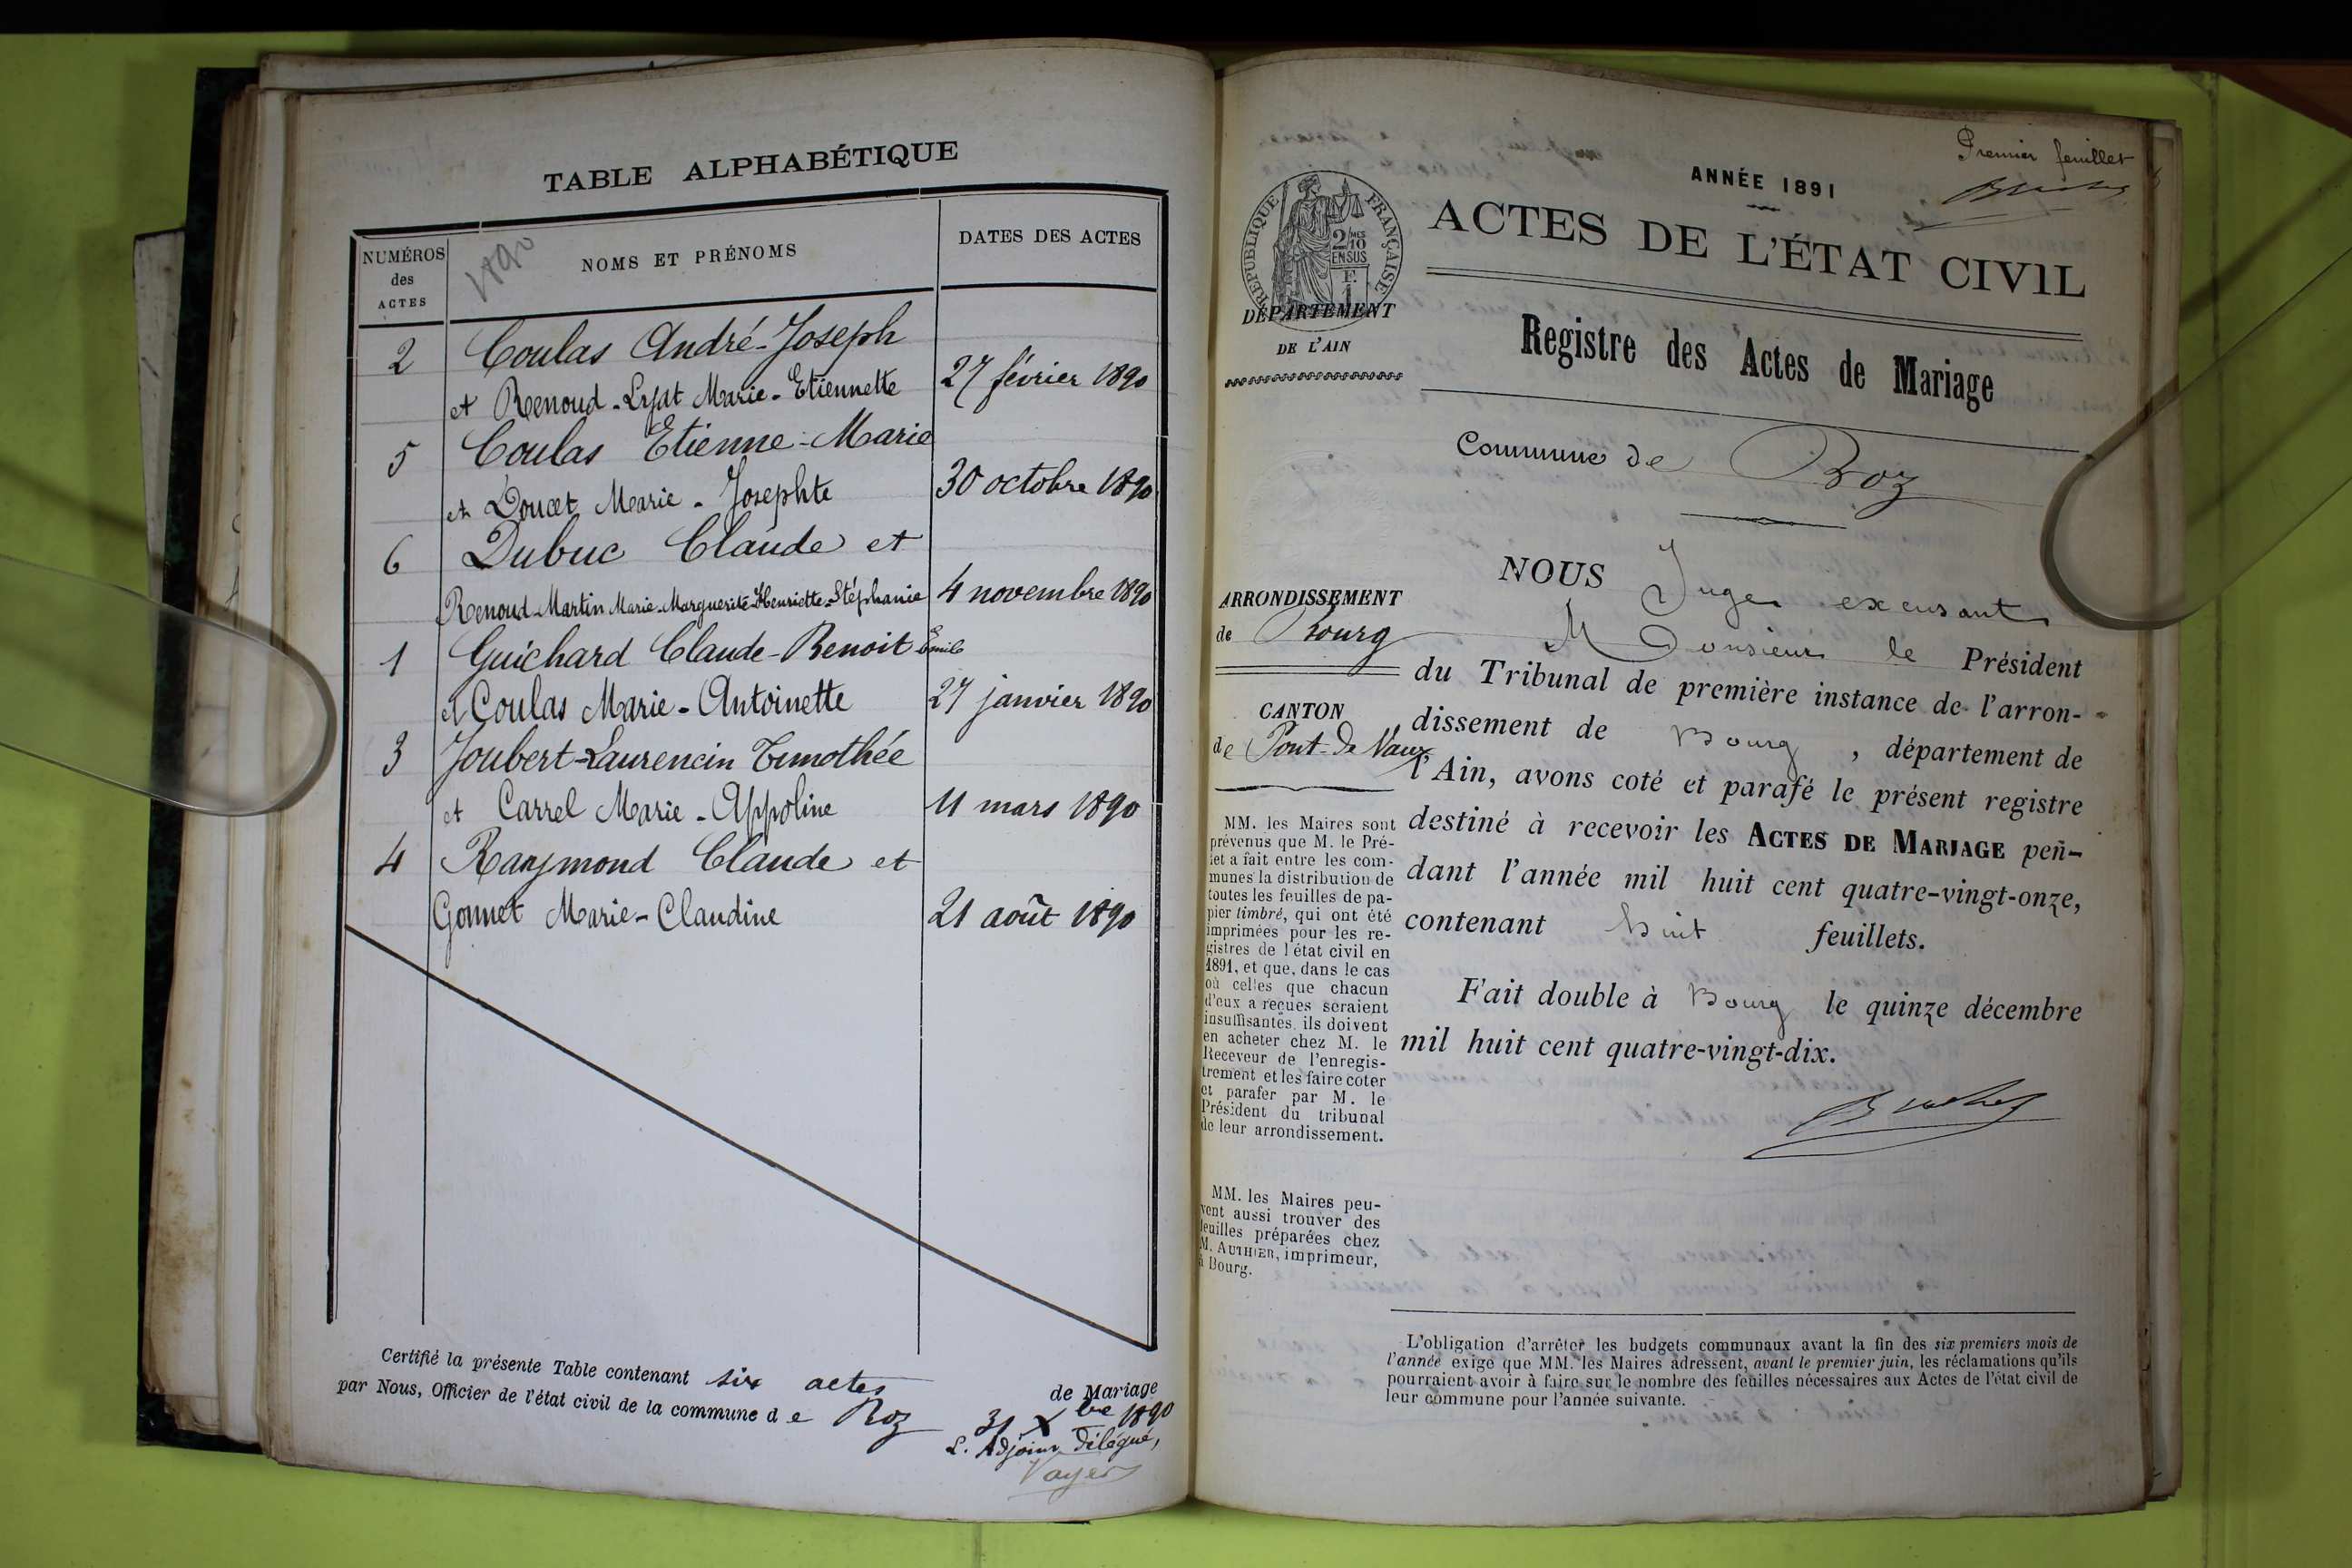 TABLE ALPHABÉTIQUE
NUMÉROS
des
ACTES
1890
NOMS ET PRÉNOMS
DATES DES ACTES
2 Coulas André-Joseph
et Renoud-Lydt Marie-Etiennette 27 février 1890
5 Coulas Etienne-Marie
et Doucet Marie-Josephte 30 octobre 1890
6 Dubuc Claude et
Renoud-Martin Marie-Marguerite-Henriette-Stéphanie 4 novembre 1890
1 Guichard Claude-Benoit Emile
et Coulas Marie-Antoinette 27 janvier 1890
3 Joubert-Laurencin Timothée
et Carrel Marie-Appoline 11 mars 1890
4 Raymond Claude et
Gonnet Marie-Claudine 21 août 1890
Certifié la présente Table contenant six actes de Mariage
par Nous, Officier de l'état civil de la commune de Boz 31 Xbre 1890
L'Adjoint Délégué,
Vayer
Premier feuillet
ANNÉE 1891
ACTES DE L'ÉTAT CIVIL
RÉPUBLIQUE FRANÇAISE
2/10 MES
EN SUS
F.
1
DÉPARTEMENT
DE L'AIN
Registre des Actes de Mariage
Commune de Boz
ARRONDISSEMENT
de Bourg
CANTON
de Pont-de-Vaux
MM. les Maires sont
prévenus que M. le Pré-
fet a fait entre les com-
munes la distribution de
toutes les feuilles de pa-
pier timbré, qui ont été
imprimées pour les re-
gistres de l'état civil en
1891, et que, dans le cas
où celles que chacun
d'eux a reçues seraient
insuffisantes, ils doivent
en acheter chez M. le
Receveur de l'enregis-
trement et les faire coter
et parafer par M. le
Président du tribunal
de leur arrondissement.
MM. les Maires peu-
vent aussi trouver des
feuilles préparées chez
M. AUTHIER, imprimeur,
à Bourg.
NOUS Juge excusant
Monsieur le Président
du Tribunal de première instance de l'arron-
dissement de Bourg, département de
l'Ain, avons coté et parafé le présent registre
destiné à recevoir les ACTES DE MARIAGE pen-
dant l'année mil huit cent quatre-vingt-onze,
contenant huit feuillets.
Fait double à Bourg le quinze décembre
mil huit cent quatre-vingt-dix.
L'obligation d'arrêter les budgets communaux avant la fin des six premiers mois de
l'année exige que MM. les Maires adressent, avant le premier juin, les réclamations qu'ils
pourraient avoir à faire sur le nombre des feuilles nécessaires aux Actes de l'état civil de
leur commune pour l'année suivante.